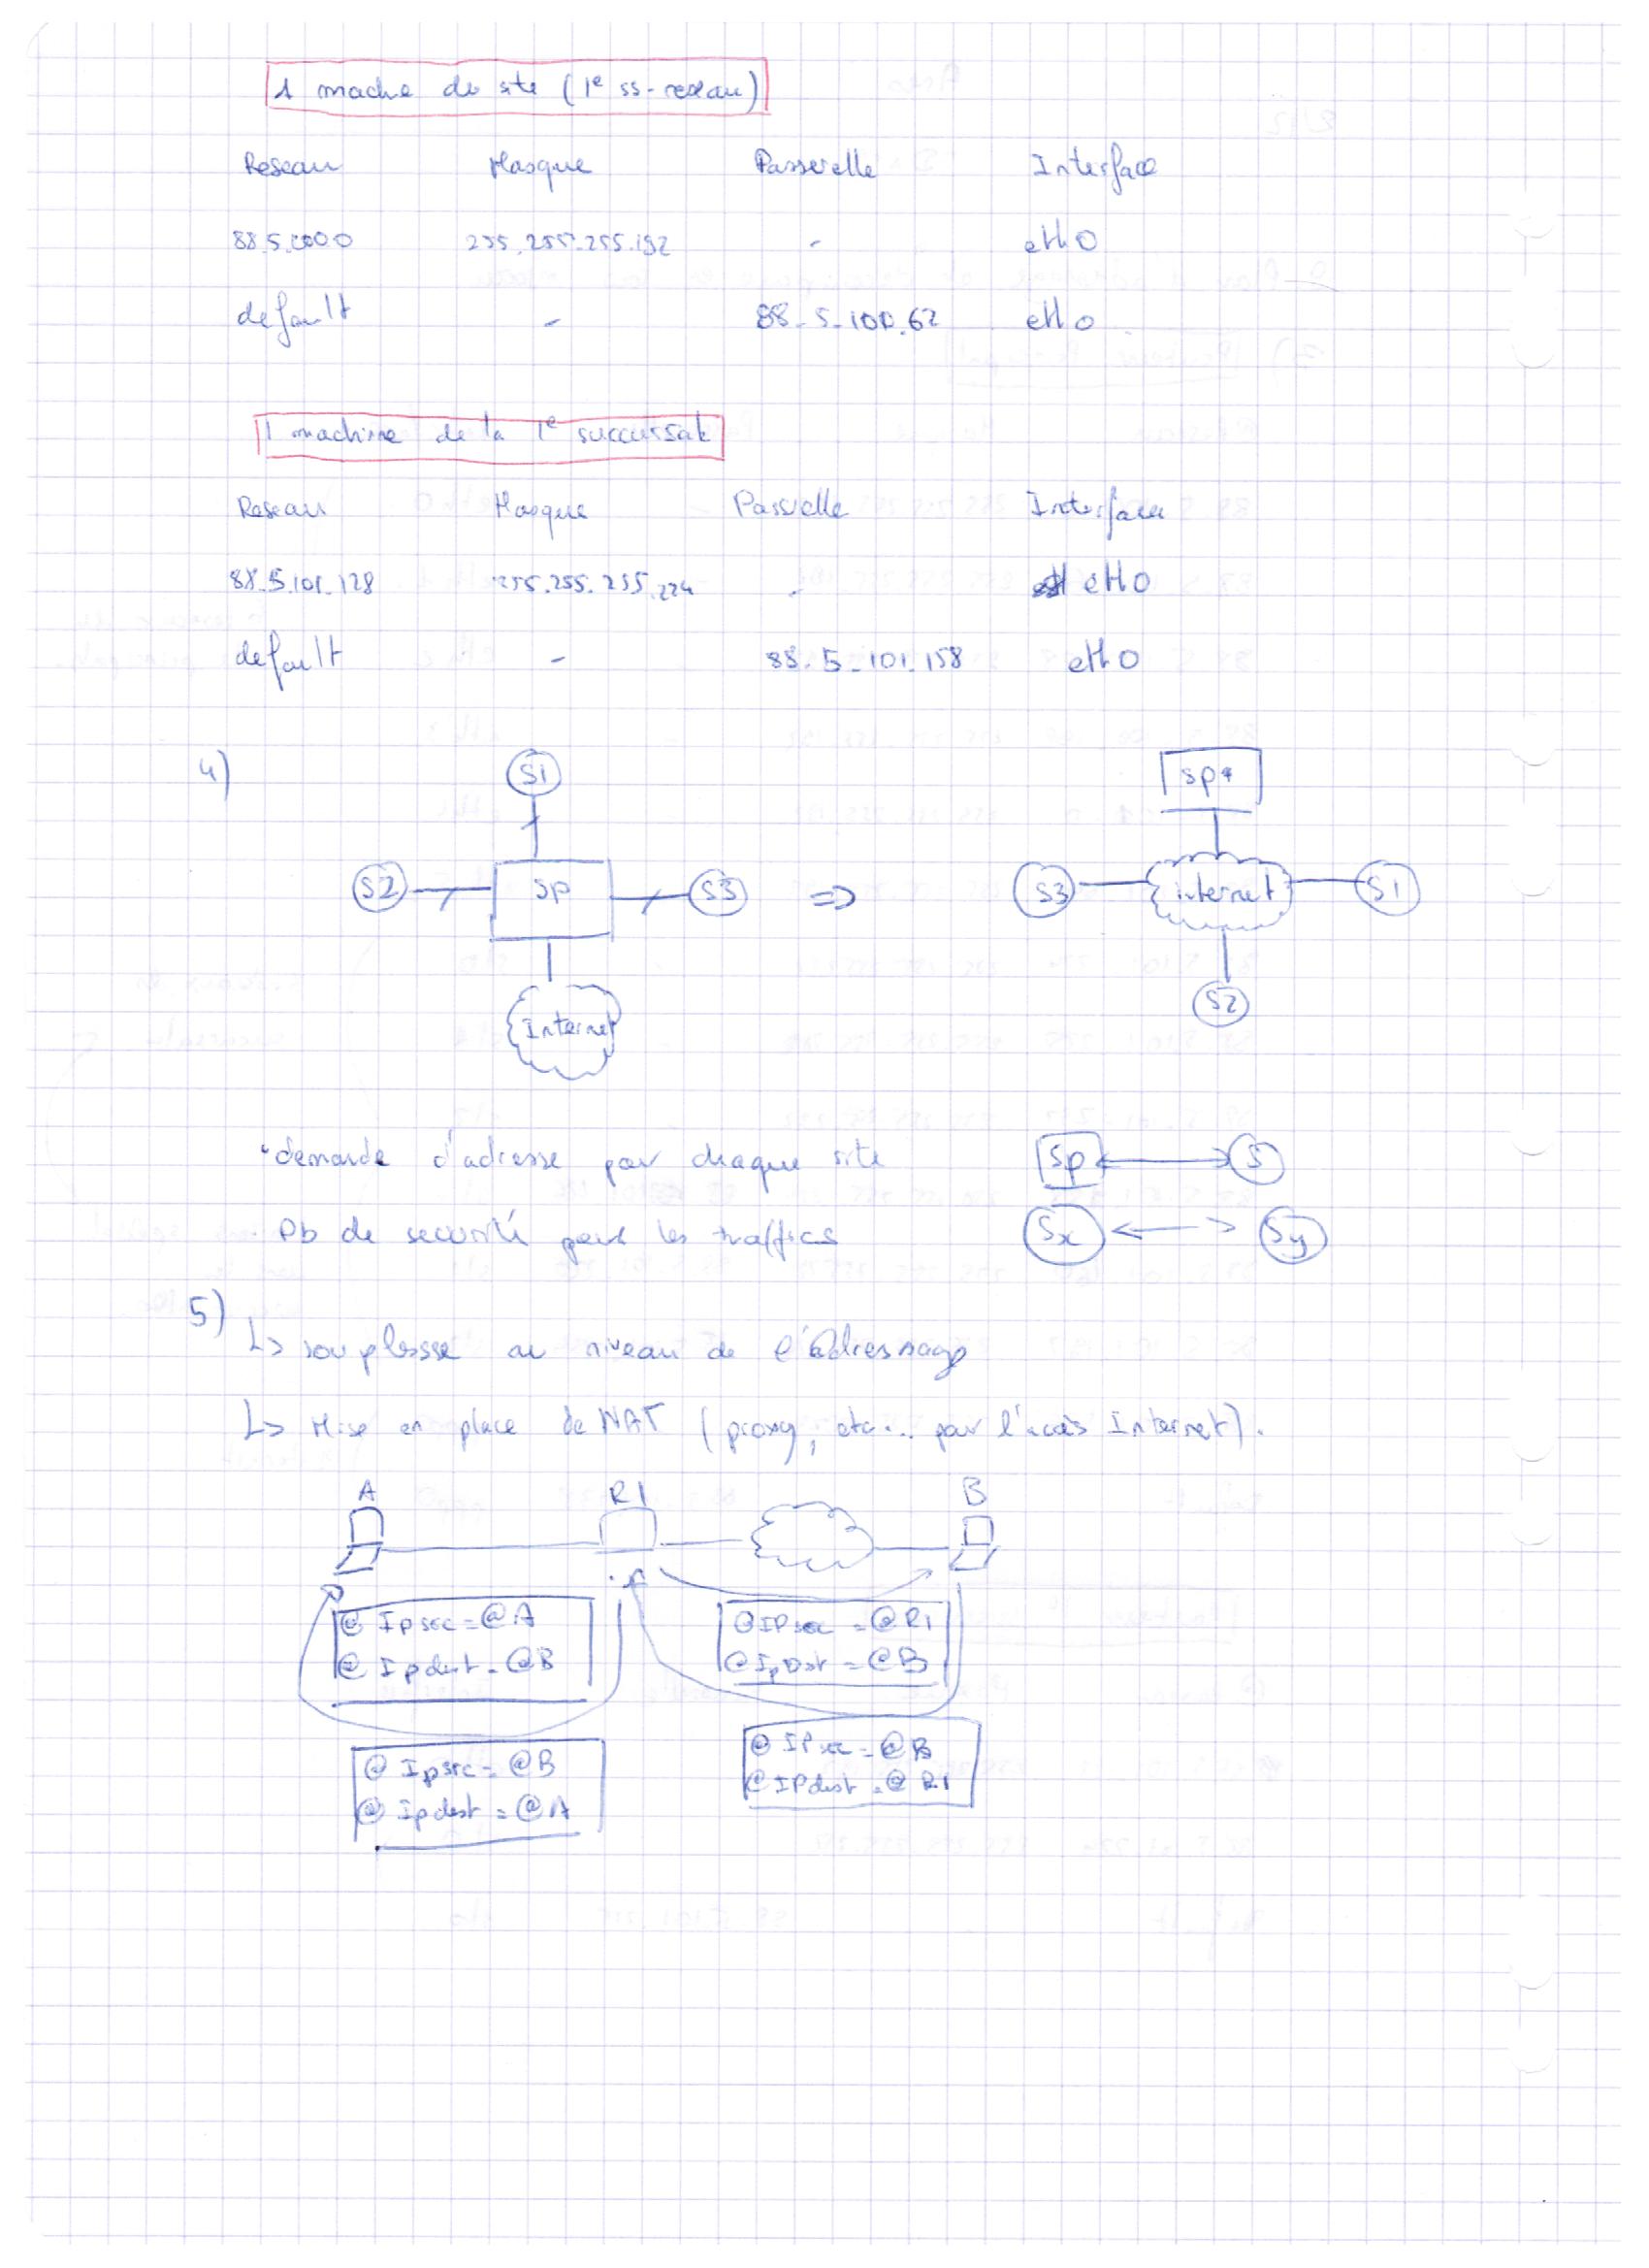 1 mache do site (1e ss-reseau)
Reseau Masque Passerelle Interface
88.5.1000.0 255.255.255.192 - eth0
default - 88.5.100.62 eth0
1 machine de la 1e succursale
Reseau Masque Passrelle Interface
88.5.101.128 255.255.255.224 - eth0
default - 88.5.101.158 eth0
4)
S1 SP
S2 SP S3 => S3 internet S1
Internet S2
demande d'adresse par chaque site SP S
Pb de securité pour les traffics Sx Sy
5)
souplesse au niveau de l'adressage
Mise en place de NAT (proxy, etc... pour l'accès Internet).
A R1 B
@ Ip src = @A
@ Ip dest = @B
@IP src = @R1
@Ip Dst = @B
@ Ip src = @B
@ Ip dest = @A
@ IP src = @B
@ IP dest = @R1